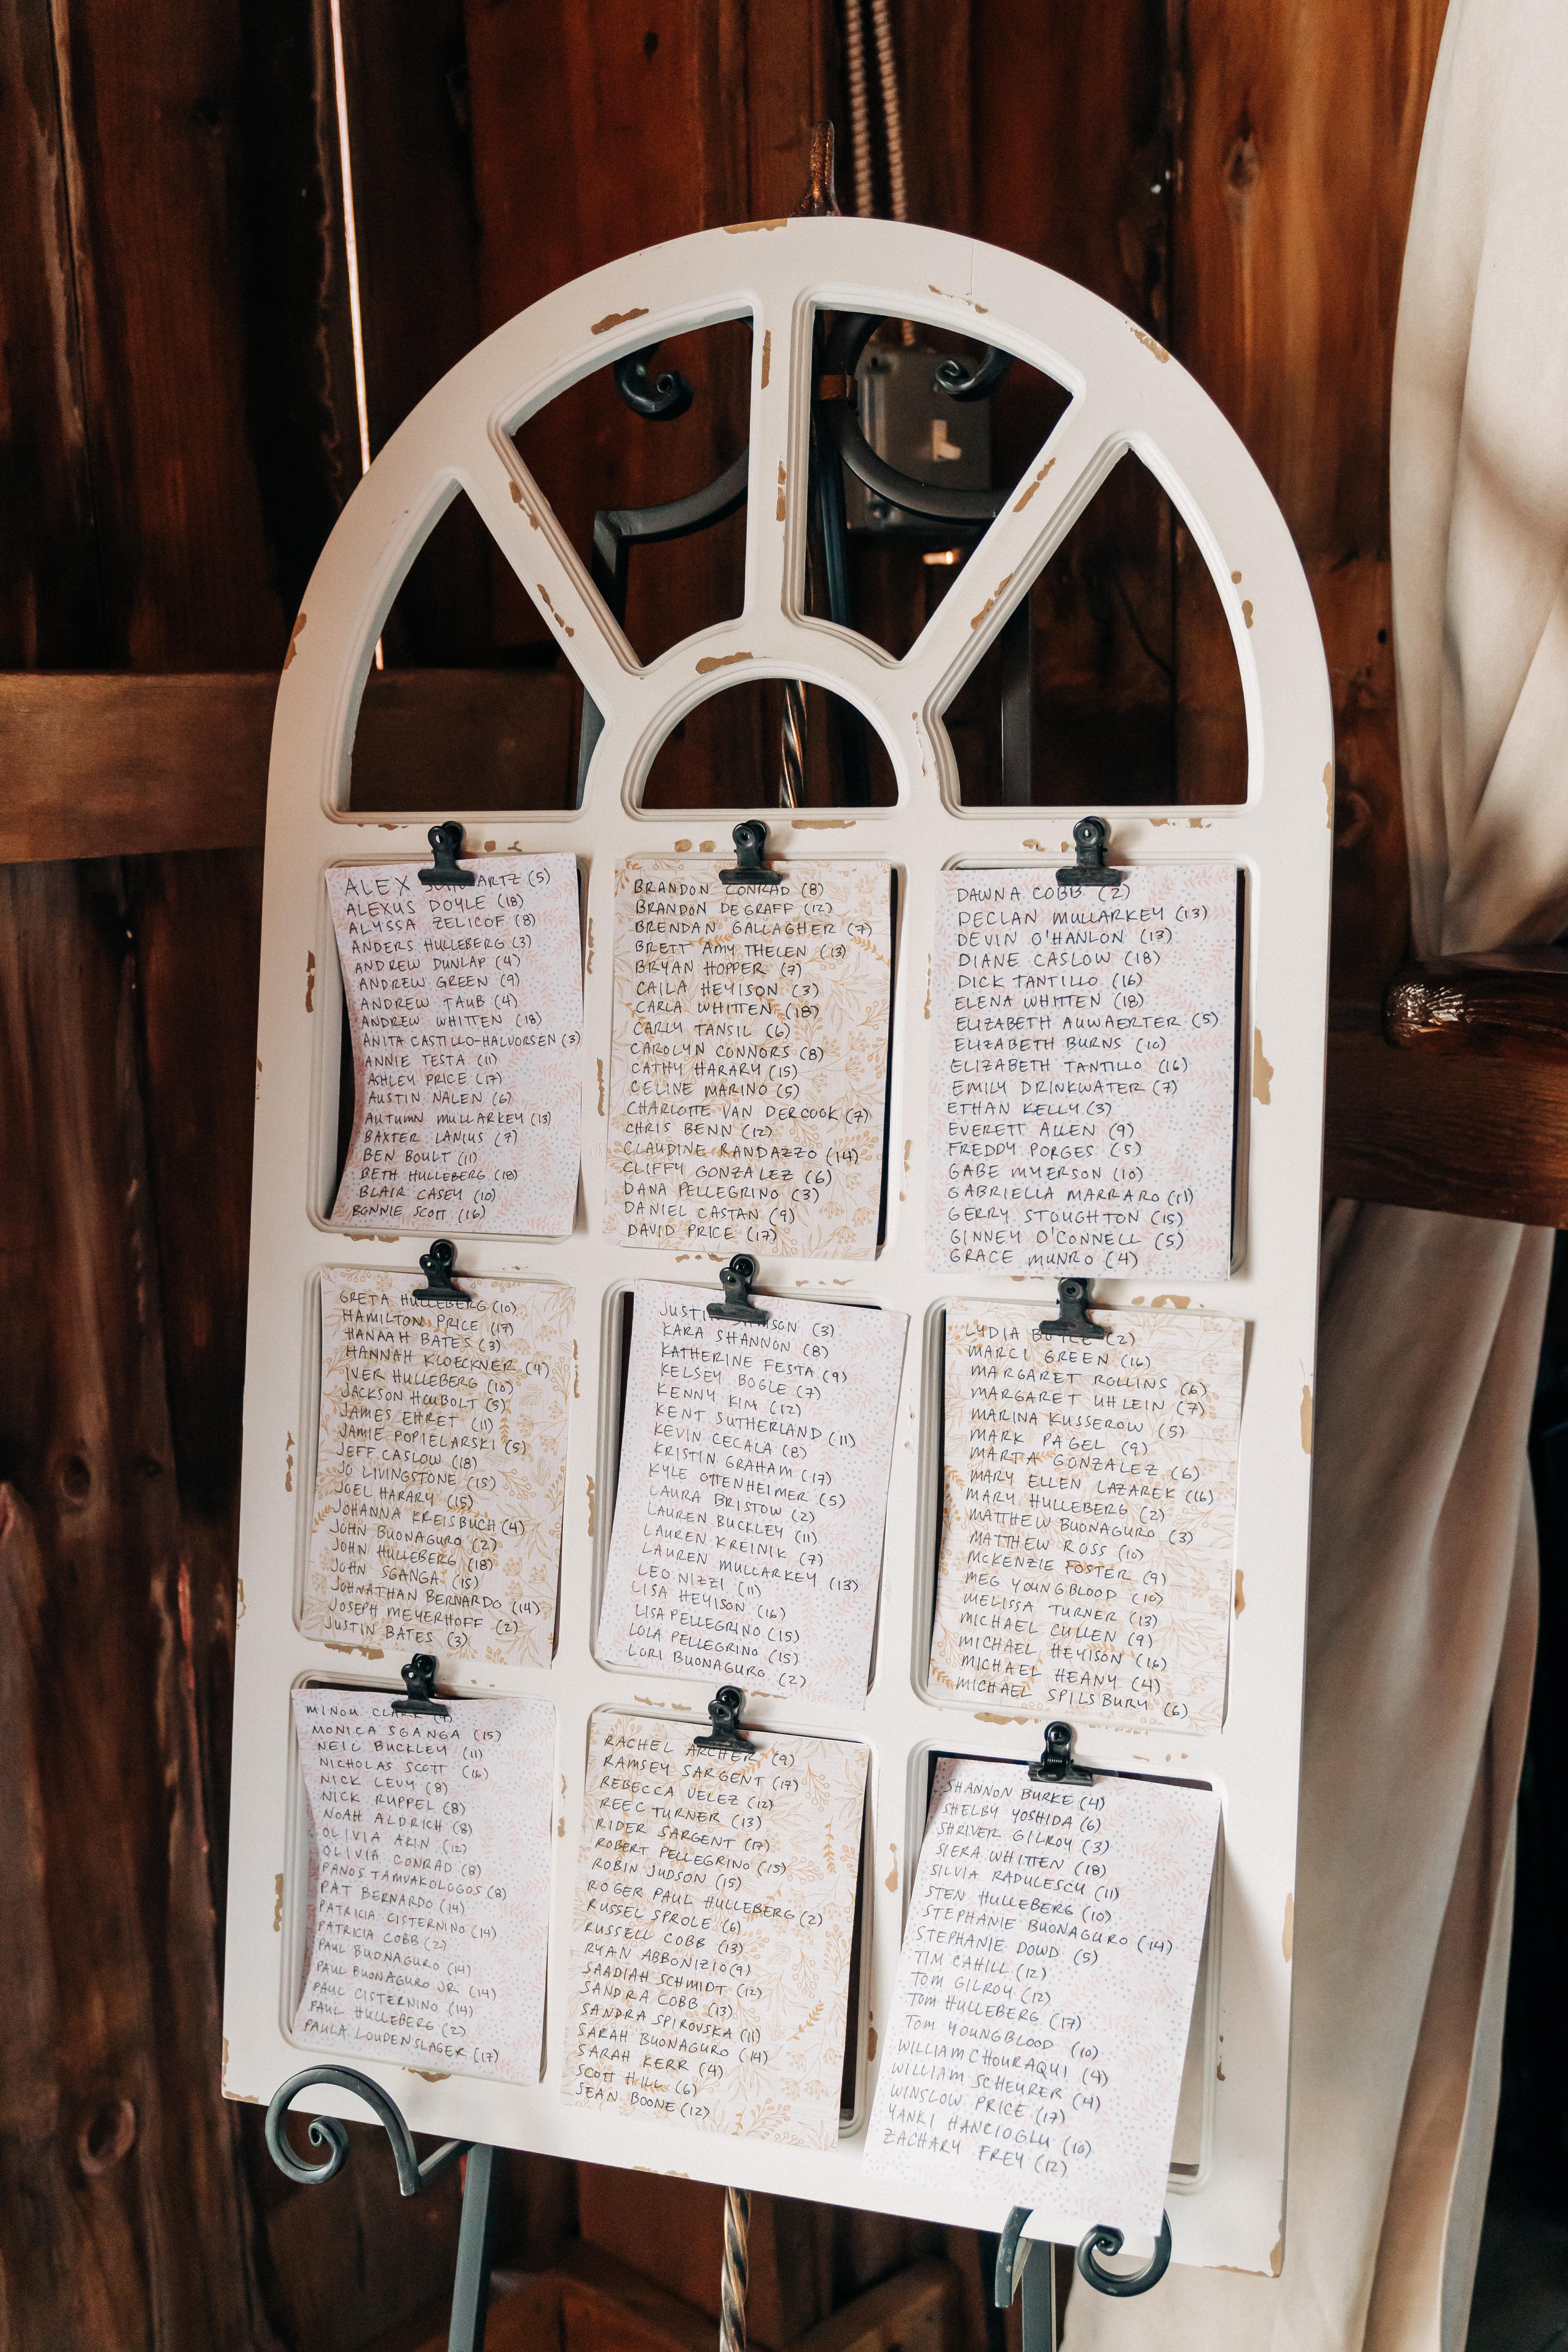 ALEX (5)
ALEXUS DOYLE (18)
ALYSSA ZELICOF (8)
ANDERS HULLEBERG (3)
ANDREW DUNLAP (4)
ANDREW GREEN (9)
ANDREW TAUB (4)
ANDREW WHITTEN (18)
ANITA CASTILLO-HALVORSEN (3)
ANNIE TESTA (11)
ASHLEY PRICE (17)
AUSTIN NALEN (6)
AUTUMN MULLARKEY (13)
BAXTER LANIUS (7)
BEN BOULT (11)
BETH HULLEBERG (18)
BLAIR CASEY (10)
BONNIE SCOTT (16)
BRANDON CONRAD (8)
BRANDON DEGRAFF (12)
BRENDAN GALLAGHER (7)
BRETT AMY THELEN (13)
BRYAN HOPPER (7)
CAILA HEYISON (3)
CARLA WHITTEN (18)
CARLY TANSIL (6)
CAROLYN CONNORS (8)
CATHY HARARY (15)
CELINE MARINO (5)
CHARLOTTE VAN DERCOOK (7)
CHRIS BENN (12)
CLAUDINE RANDAZZO (14)
CLIFFY GONZALEZ (6)
DANA PELLEGRINO (3)
DANIEL CASTAN (9)
DAVID PRICE (17)
DAWNA COBB (2)
DECLAN MULLARKEY (13)
DEVIN O'HANLON (13)
DIANE CASLOW (18)
DICK TANTILLO (16)
ELENA WHITTEN (18)
ELIZABETH AUWAERTER (5)
ELIZABETH BURNS (10)
ELIZABETH TANTILLO (16)
EMILY DRINKWATER (7)
ETHAN KELLY (3)
EVERETT ALLEN (9)
FREDDY PORGES (5)
GABE MYERSON (10)
GABRIELLA MARRARO (11)
GERRY STOUGHTON (15)
GINNEY O'CONNELL (5)
GRACE MUNRO (4)
GRETA HULLEBERG (10)
HAMILTON PRICE (17)
HANAAH BATES (3)
HANNAH KLOECKNER (4)
IVER HULLEBERG (10)
JACKSON HOUBOLT (5)
JAMES EHRET (11)
JAMIE POPIELARSKI (5)
JEFF CASLOW (18)
JO LIVINGSTONE (15)
JOEL HARARY (15)
JOHANNA KREISBUCH (4)
JOHN BUONAGURO (2)
JOHN HULLEBERG (18)
JOHN SGANGA (15)
JOHNATHAN BERNARDO (14)
JOSEPH MEYERHOFF (2)
JUSTIN BATES (3)
JUSTIN (3)
KARA SHANNON (8)
KATHERINE FESTA (9)
KELSEY BOGLE (7)
KENNY KIM (12)
KENT SUTHERLAND (11)
KEVIN CECALA (8)
KRISTIN GRAHAM (17)
KYLE OTTENHEIMER (5)
LAURA BRISTOW (2)
LAUREN BUCKLEY (11)
LAUREN KREINIK (7)
LAUREN MULLARKEY (13)
LEO NIZZI (11)
LISA HEYISON (16)
LISA PELLEGRINO (15)
LOLA PELLEGRINO (15)
LORI BUONAGURO (2)
LYDIA (2)
MARCI GREEN (16)
MARGARET ROLLINS (6)
MARGARET UHLEIN (7)
MARINA KUSSEROW (5)
MARK PAGEL (9)
MARTA GONZALEZ (6)
MARY ELLEN LAZAREK (16)
MARY HULLEBERG (2)
MATTHEW BUONAGURO (3)
MATTHEW ROSS (10)
MCKENZIE FOSTER (9)
MEG YOUNGBLOOD (10)
MELISSA TURNER (13)
MICHAEL CULLEN (9)
MICHAEL HEYISON (16)
MICHAEL HEANY (4)
MICHAEL SPILSBURY (6)
MINOU CLARK
MONICA SGANGA (15)
NEIL BUCKLEY (11)
NICHOLAS SCOTT (16)
NICK LEVY (8)
NICK RUPPEL (8)
NOAH ALDRICH (8)
OLIVIA AKIN (12)
OLIVIA CONRAD (8)
PANOS TAMVAKOLOGOS (8)
PAT BERNARDO (14)
PATRICIA CISTERNINO (14)
PATRICIA COBB (2)
PAUL BUONAGURO (14)
PAUL BUONAGURO JR (14)
PAUL CISTERNINO (14)
PAUL HULLEBERG (2)
PAULA LOUDENSLAGER (17)
RACHEL ARCHER (9)
RAMSEY SARGENT (17)
REBECCA VELEZ (12)
REEC TURNER (13)
RIDER SARGENT (17)
ROBERT PELLEGRINO (15)
ROBIN JUDSON (15)
ROGER PAUL HULLEBERG (2)
RUSSEL SPROLE (6)
RUSSELL COBB (13)
RYAN ABBONIZIO (9)
SAADIAH SCHMIDT (12)
SANDRA COBB (13)
SANDRA SPIROVSKA (11)
SARAH BUONAGURO (14)
SARAH KERR (4)
SCOTT HILL (6)
SEAN BOONE (12)
SHANNON BURKE (4)
SHELBY YOSHIDA (6)
SHRIVER GILROY (3)
SIERA WHITTEN (18)
SILVIA RADULESCU (11)
STEN HULLEBERG (10)
STEPHANIE BUONAGURO (14)
STEPHANIE DOWD (5)
TIM CAHILL (12)
TOM GILROY (12)
TOM HULLEBERG (17)
TOM YOUNGBLOOD (10)
WILLIAM CHOURAQUI (4)
WILLIAM SCHEURER (4)
WINSLOW PRICE (17)
YANKI HANCIOGLU (10)
ZACHARY FREY (12)